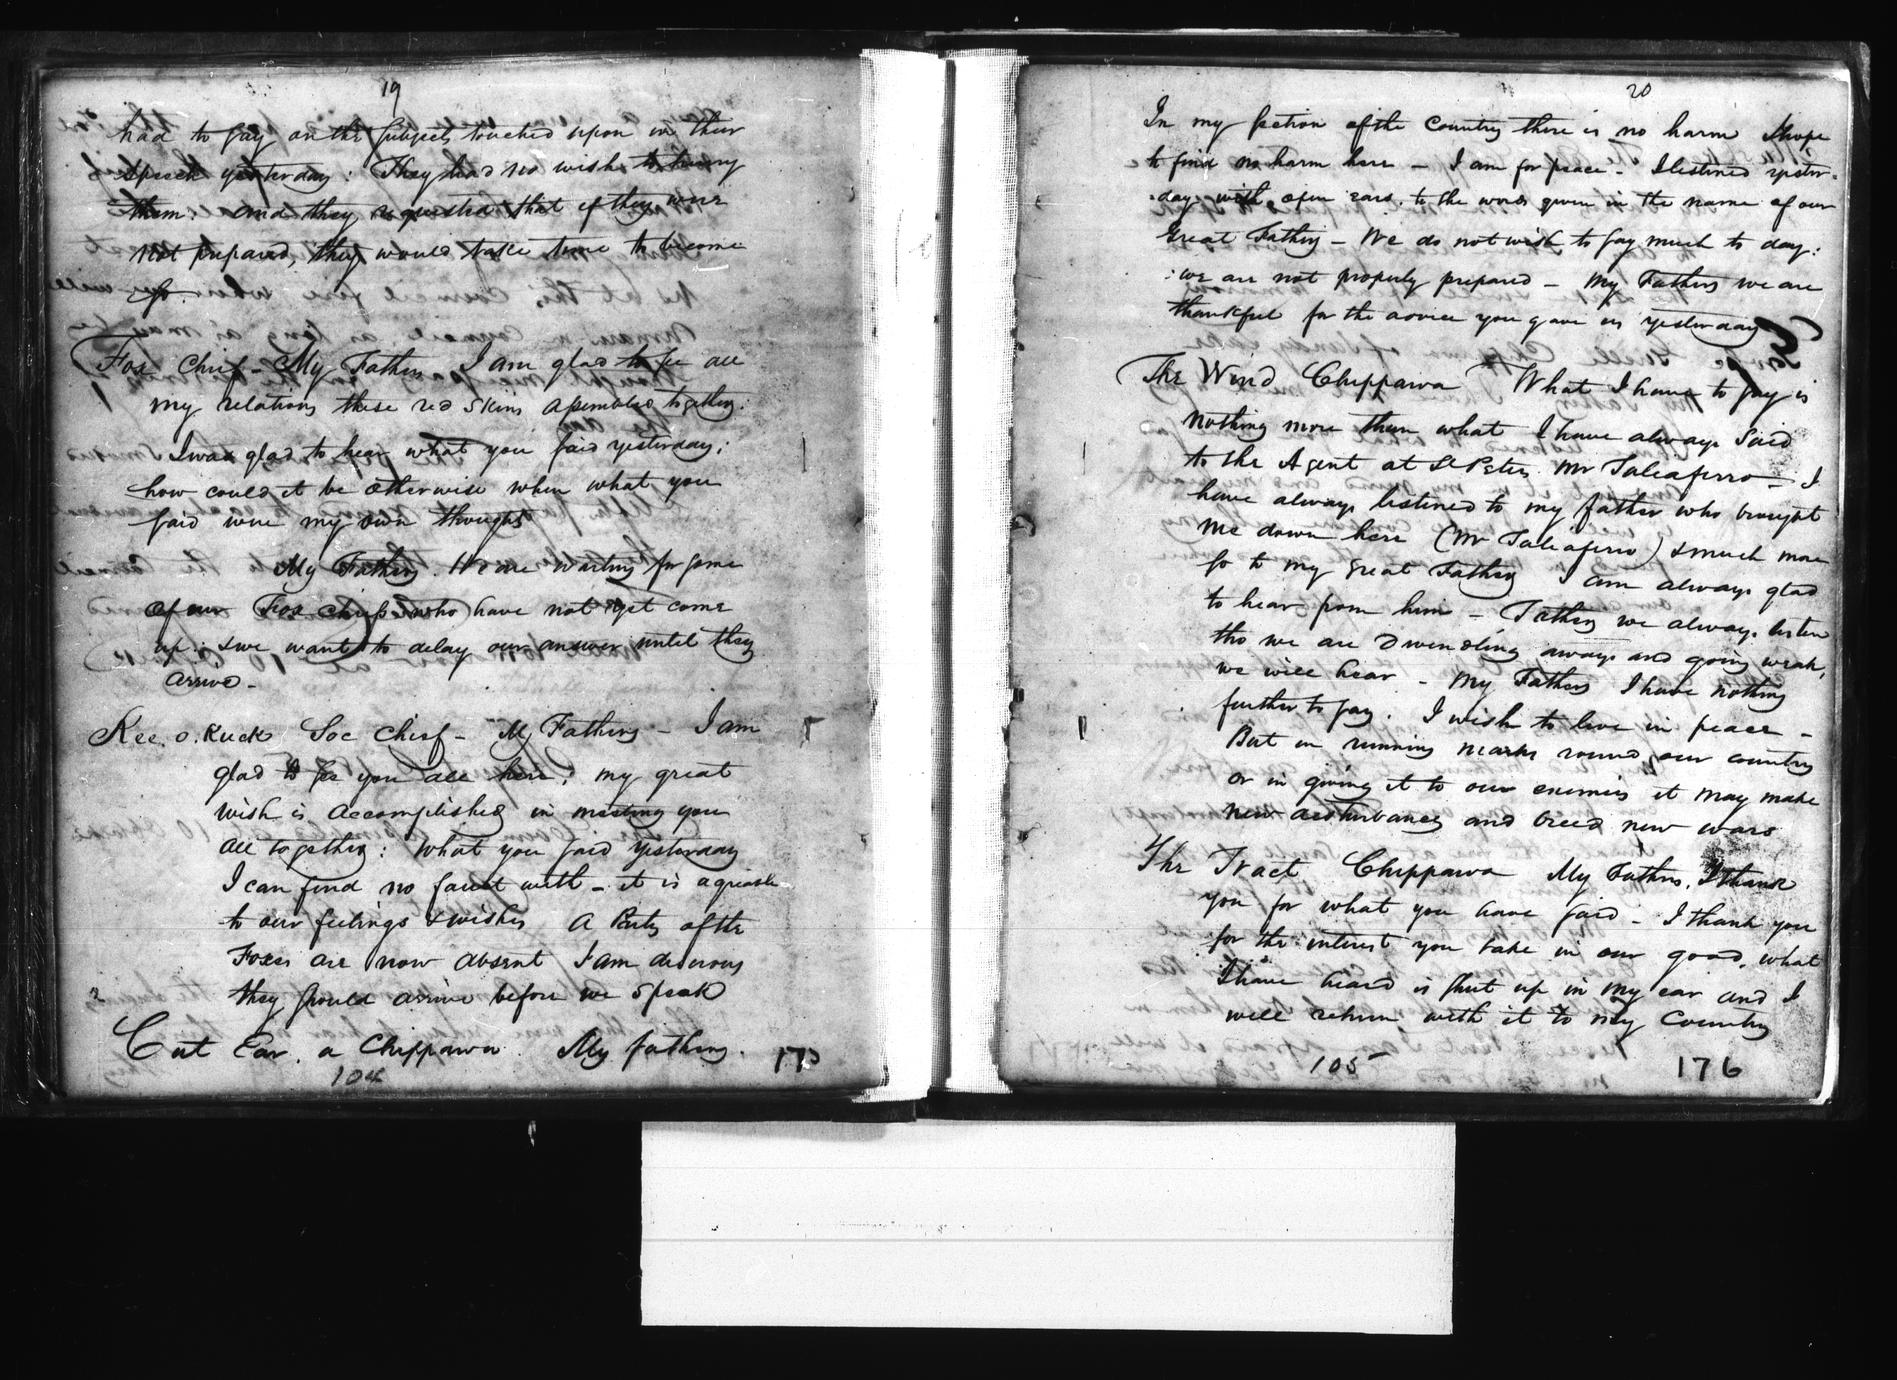 19
had to say on the subjects touched upon in their
speech yesterday: They had no wish to hurry
them: and they requested that if they were
not prepared, they would take time to become
so.
Fox Chief - My Fathers I am glad to see all
my relations these red skins assembled together:
I was glad to hear what you said yesterday;
how could it be otherwise when what you
said were my own thoughts
My Fathers. We are waiting for some
of our Fox chiefs who have not yet come
up: & we want to delay our answer until they
arrive -
Kee.o.Kuck Soc Chief - My Fathers - I am
glad to see you all here; my great
wish is accomplished in meeting you
all together: What you said yesterday
I can find no fault with - it is agreable
to our feelings & wishes A Party of the
Foxes are now absent I am desirous
they should arrive before we speak
2
Cut Ear. a Chippawa. My fathers.
104
175
20
In my section of the Country there is no harm I hope
to find no harm here - I am for peace - I listened yester-
-day with open ears. to the words given in the name of our
Great Father - We do not wish to say much to day:
:we are not properly prepared - My Fathers we are
thankful for the advice you gave us yesterday
The Wind Chippawa What I have to say is
nothing more than what I have always said
to the Agent at St Peters Mr Taleaferro - I
have always listened to my father who brought
me down here (Mr Taleaferro) & much more
so to my Great Father I am always glad
to hear from him - Fathers we always listen
tho we are Dwindling away and going weak,
we will hear - My Fathers I have nothing
further to say. I wish to live in peace -
But in running marks round our country
or in giving it to our enemies it may make
new disturbances and breed new wars
The Tract Chippawa My Fathers, I thank
you for what you have said - I thank you
for the interest you take in our good. what
I have heard is shut up in my ear and I
will return with it to my Country
105
176